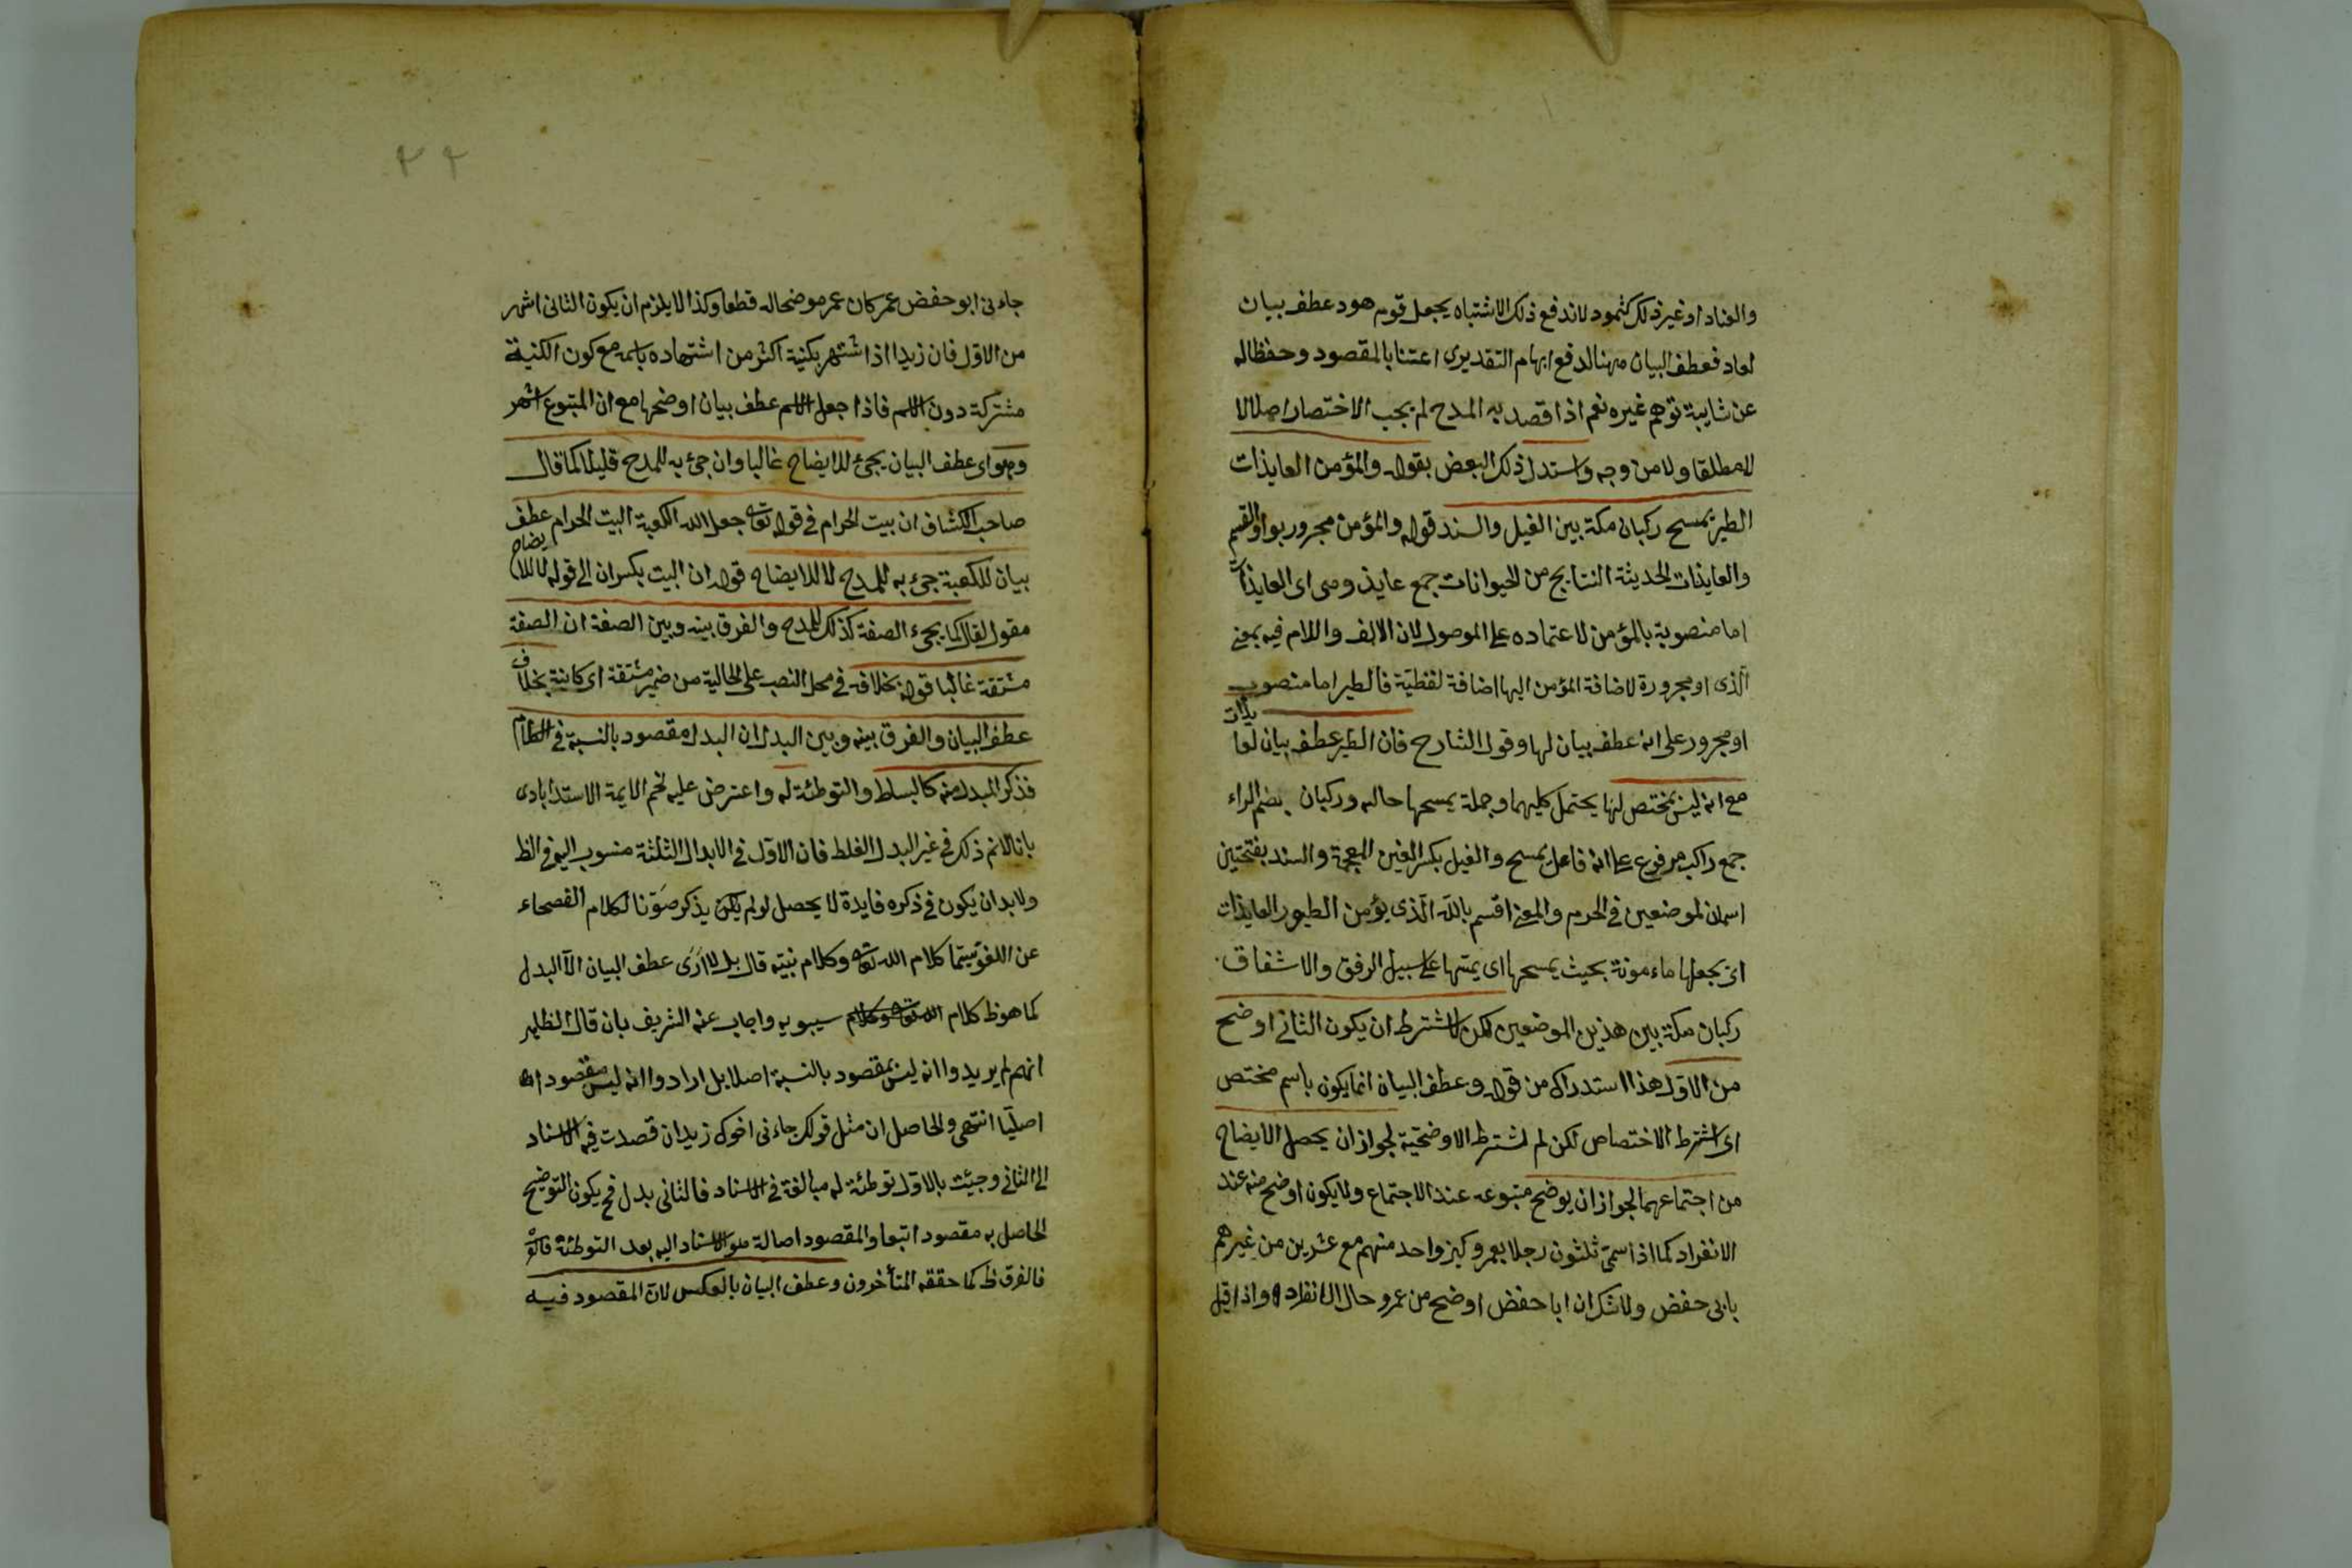 والعناد او غير ذلك كثمود لاندفع ذلك الاشتباه يجعل قوم هود عطف بيان
لعاد فعطف البيان ههنا لدفع ابهام التقديرى اعتنا بالمقصود وحفظا له
عن شايبة توهم غيره نعم اذا قصد به المدح لم يجب الاختصار اصلا لا
لا مطلقا ولا من وجه واستدل ذلك البعض بقوله والمؤمن العايذات
الطير تمسح ركبان مكة بين الغيل والسند قوله والمؤمن مجرور بواو القسم
والعايذات الحديثة النتايج من الحيوانات جمع عايذ وهى اى العايذات
اما منصوبة بالمؤمن لاعتماده على الموصول لان الالف واللام فيه بمعنى
الّذى او مجرورة لاضافة المؤمن اليها اضافة لفظيّة فالطير اما منصوب
او مجرور على انه عطف بيان لها وقول الشارح فان الطير عطف بيان لعايذات
مع انه ليس بمختص لها يحتمل كليهما وجملة يمسحها حاله وركبان بضم الراء
جمع راكب مرفوع على انه فاعل يمسح والغيل بكسر الغين المعجمة والسند بفتحتين
اسمان لموضعين فى الحرم والمعنى اقسم بالله الّذى يؤمن الطيور العايذات
اى يجعلها ماءمونة بحيث يمسحها اى يمسّها على سبيل الرفق والاشفاق.
ركبان مكة بين هذين الموضعين لكن لا يشترط ان يكون الثانى اوضح
من الاوّل هذا استدراك من قوله وعطف البيان انما يكون باسم مختص
اى اشترط الاختصاص لكن لم يشترط الاوضحيّة لجواز ان يحصل الايضاح
من اجتماعهما لجواز ان يوضح متبوعه عند الاجتماع ولا يكون اوضح منه عند
الانفراد كما اذا سمّى ثلثون رجلا بعمرو كنى واحد منهم مع عشرين من غيرهم
بابى حفض ولا شك ان ابا حفض اوضح من عمرو حال الانفراد واذا قيل
٢٢
جاءنى ابو حفض عمر كان عمر موضحا له قطعا وكذا لا يلزم ان يكون الثانى اشهر
من الاوّل فان زيدا اذا اشتهر بكنية اكثر من اشتهاده باسمه مع كون الكنية
مشتركة دون الاسم فاذا جعل الاسم عطف بيان اوضحها مع ان المتبوع اشهر
وهو اى عطف البيان يجئ للايضاح غالبا وان جئ به للمدح قليلا كما قال
صاحب الكشاف ان بيت الحرام فى قوله تعالى جعل الله الكعبة البيت الحرام عطف
بيان للكعبة جئ به للمدح لا للايضاح قوله ان البيت بكسر ان الى قوله لا للايضاح
مقول لقال كما يجىء الصفة كذلك للمدح والفرق بينه وبين الصفة ان الصفة
مشتقة غالبا قوله بخلافه فى محل النصب على الحالية من ضمير مشتقة اى كاينة بخلاف
عطف البيان والفرق بينه وبين البدل ان البدل مقصود بالنسبة فى الكلام
فذكر المبدل منه كالبساط والتوطئة له واعترض عليه نجم الايمة الاستدابادى
بانا لانم ذلك فى غير البدل الغلط فان الاوّل فى الابدال الثلثة منسوب اليه فى الظ
ولابد ان يكون فى ذكره فايدة لا يحصل لو لم يكن يذكر صَوْنا لكلام الفصحاء
عن اللغو سيّما كلام الله تعالى وكلام نبيّه قال بل لا اَرَى عطف البيان الّا البدل
كما هو ظ كلام الله تعالى وكلام سيبويه واجاب عنه الشريف بان قال الظاهر
انهم لم يريدوا انه ليس بمقصود بالنسبة اصلا بل ارادوا انه ليس مقصودا
اصليّا انتهى والحاصل ان مثل قولك جاءنى اخوك زيد ان قصدت فيه الاسناد
الى الثانى وجيئت بالاوّل توطئة له مبالغة فى الاسناد فالثانى بدل فح يكون التوضيح
الحاصل به مقصود اتبعا والمقصود اصالة هو الاسناد اليه بعد التوطئة
فالفرق ظ كما حققه المتأخرون وعطف البيان بالعكس لانّ المقصود فيه